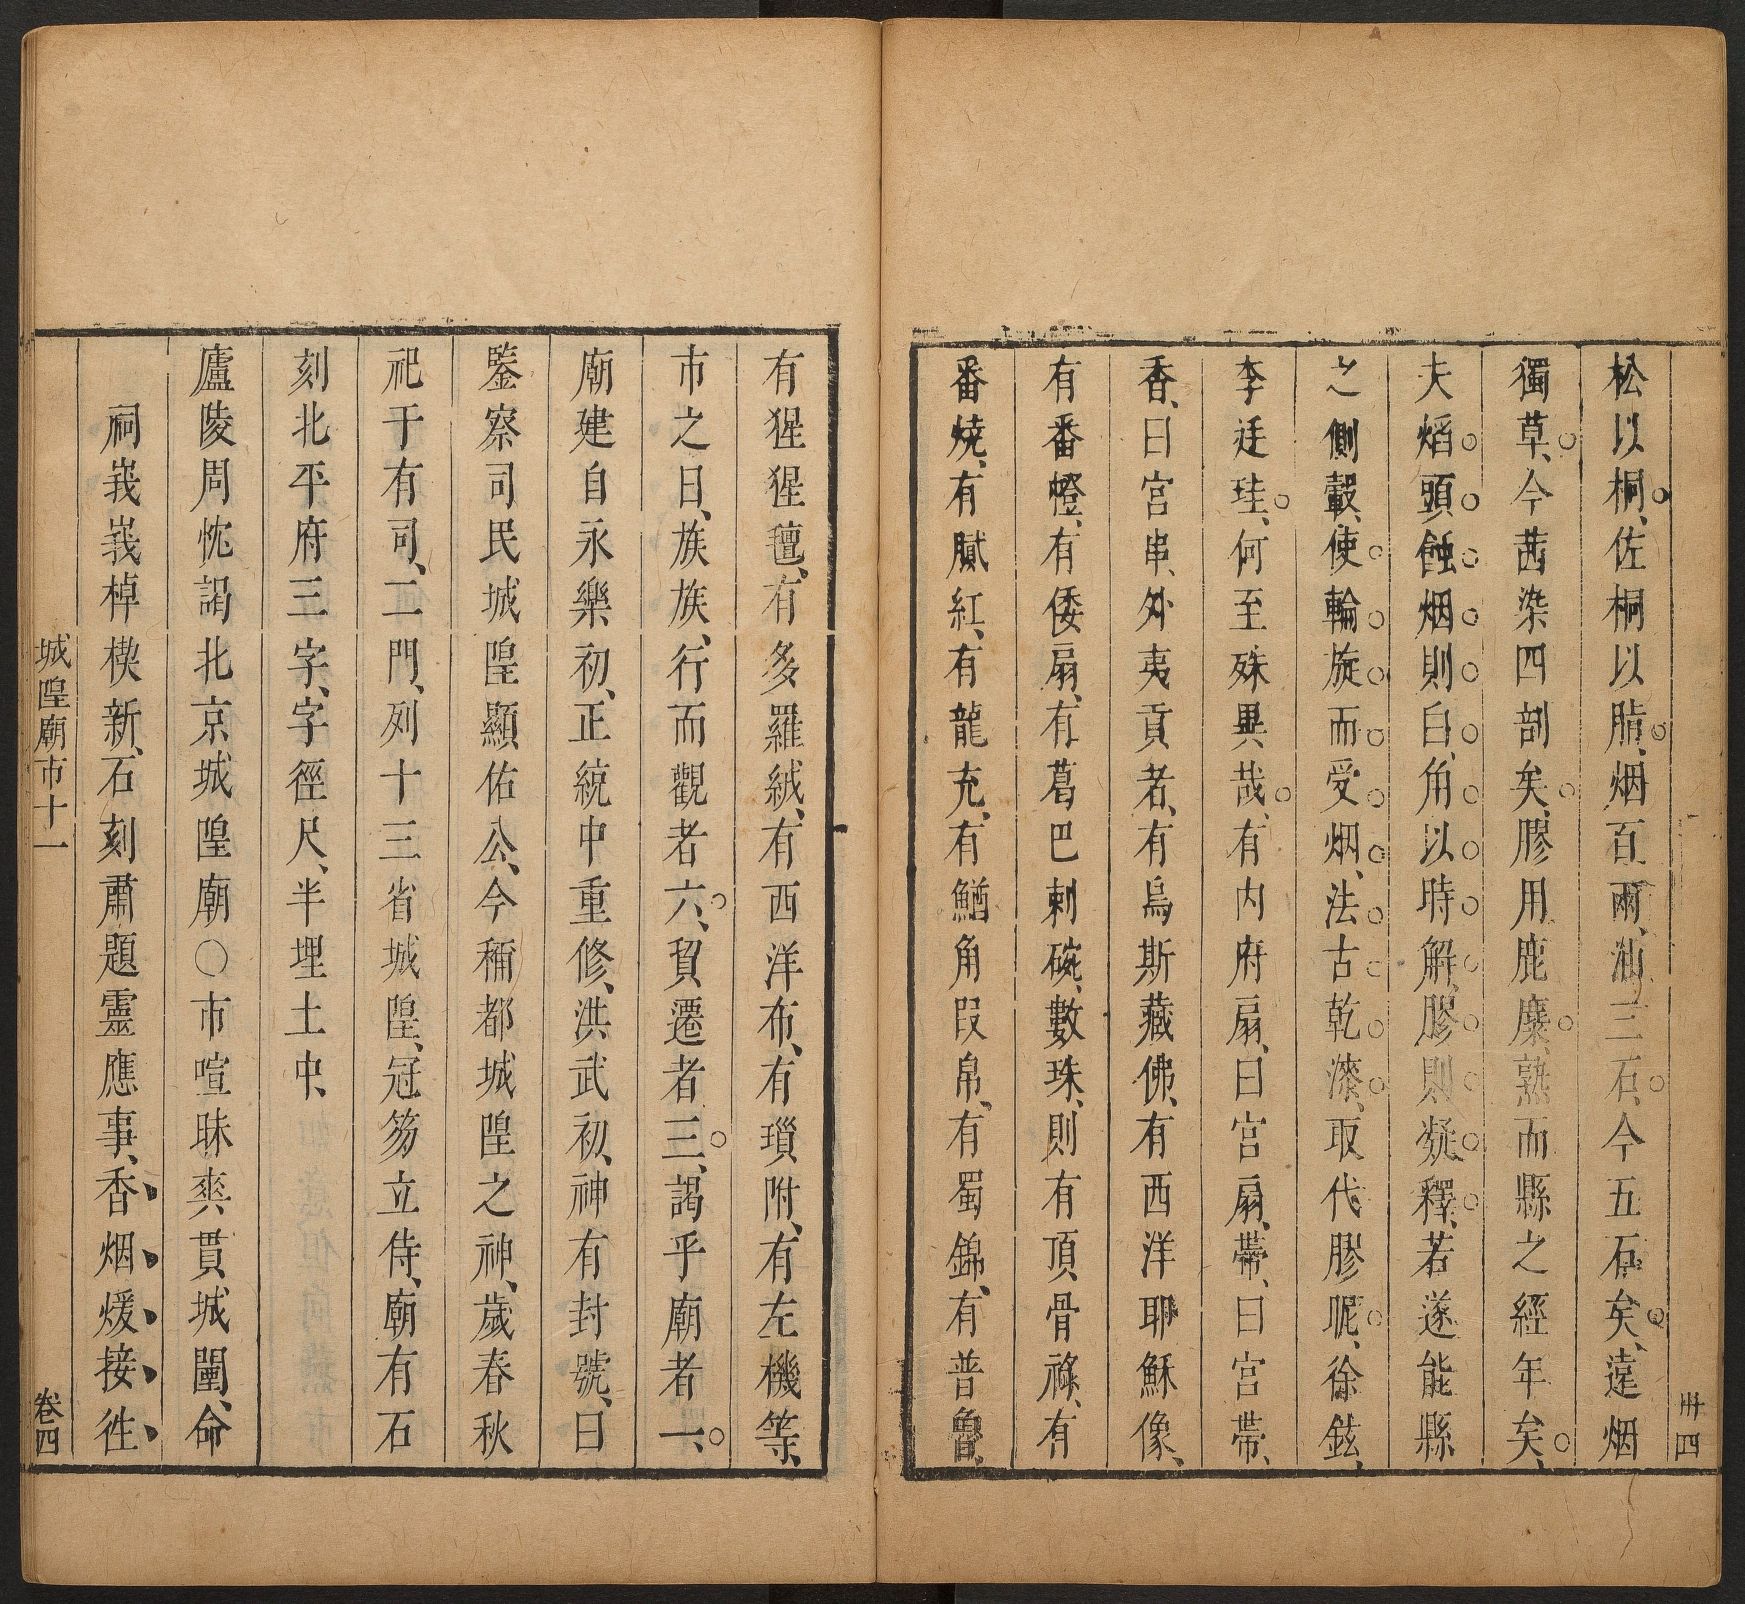 松以桐、佐桐以脂、烟百兩、油三石、今五石矣、遠烟
獨草、今茜染四剖矣、膠用鹿麋、熟而縣之經年矣、
夫熖頭蝕烟則白、角以時解、膠則凝釋、若遂能縣
之側轂、使輪旋而受烟、法古乾漆、取代膠昵、徐鉉、
李廷珪、何至殊異哉、有内府扇、曰宫扇、帶、曰宫帶、
香、曰宫串、外夷貢者、有烏斯藏佛、有西洋耶穌像、
有番㡧、有倭扇、有葛巴剌碗、數珠、則有頂骨祿、有
番燒、有膩紅、有龍充、有鰌角叚帛、有蜀錦、有普魯、
有猩猩氊、有多羅絨、有西洋布、有瑣附、有左機等、
市之日、族族、行而觀者六、貿遷者三、謁乎廟者一、
廟建自永樂初、正統中重修、洪武初、神有封號、曰
鑒察司民城隍顯佑公、今稱都城隍之神、歲春秋
祀于有司、二門、列十三省城隍、冠笏立侍、廟有石
刻北平府三字、字徑尺、半埋土中、
廬陵周忱謁北京城隍廟○市喧昧爽貫城闉、命
祠峩峩棹楔新、石刻肅題靈應事、香烟煖接徃
城隍廟市十一
卷四
卅四